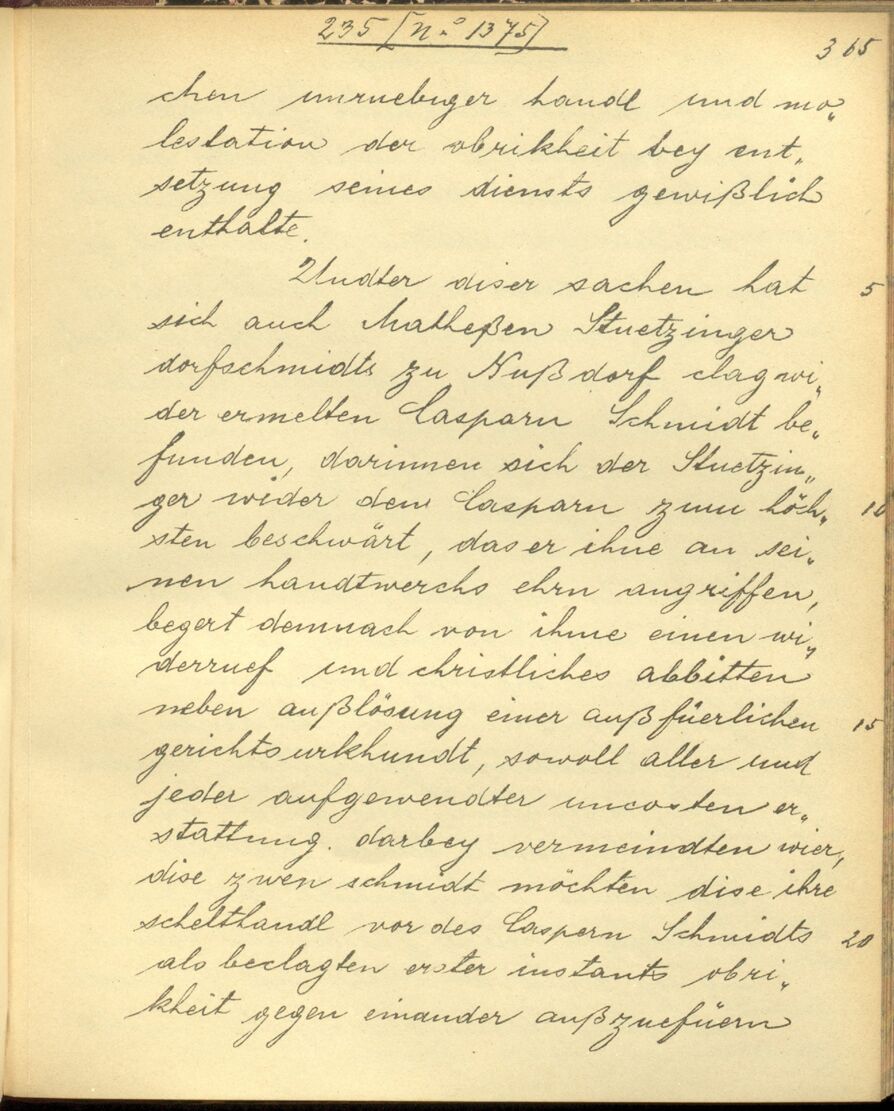 235 [N.º 1375]
365
chen unruebiger handl und mo„
lestation der obrikheit bey ent„
setzung seines diensts gewißlich
enthalte.
Undter diser sachen hat 5
sich auch Matheßen Stuetzinger
dorfschmidts zu Nußdorf clag wi„
der ermelten Casparn Schmidt be„
funden, darinnen sich der Stuetzin„
ger wider den Casparn zum höch„ 10
sten beschwärt, das er ihne an sei„
nen handtwerchs ehrn angriffen,
begert demnach von ihme einen wi„
derruef und christliches abbitten
neben außlösung einer außfüerlichen 15
gerichtsurkhundt, sowoll aller und
jeder aufgewendter uncosten er„
stattung. darbey vermeindten wier,
dise zwen schmidt möchten dise ihre
schelthandl vor des Caspern Schmidts 20
als beclagten erster instants obri„
kheit gegen einander außzuefüern